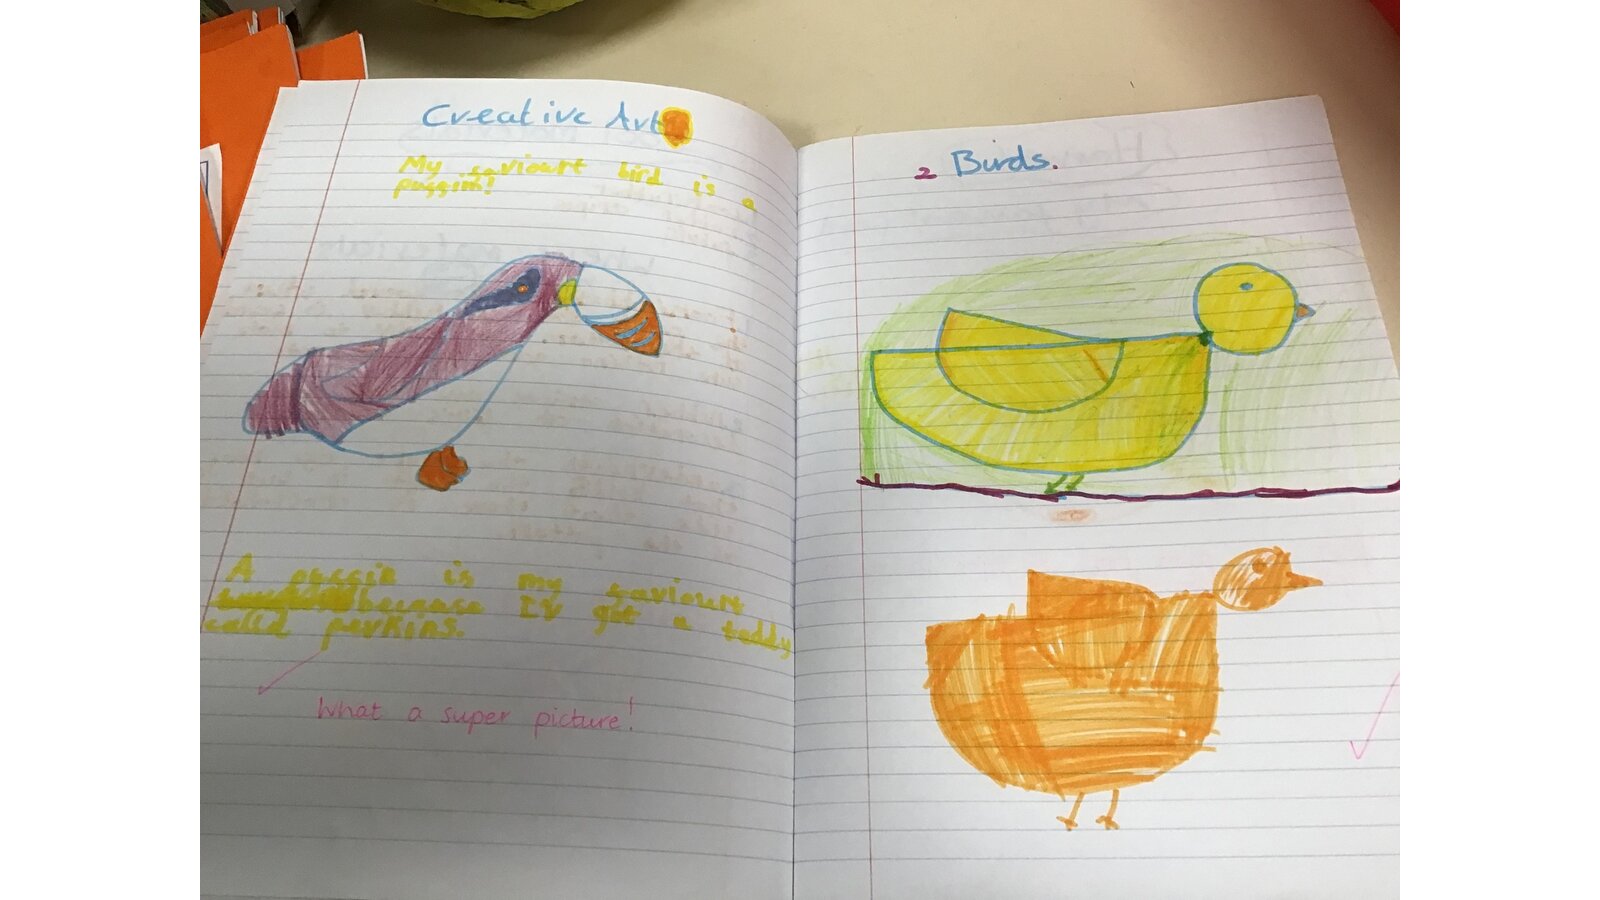 Creative Art
My saviourt bird is a
puggin!
A puggin is my saviourt
because Iv got a taddy
called perkins.
What a super picture!
2 Birds.